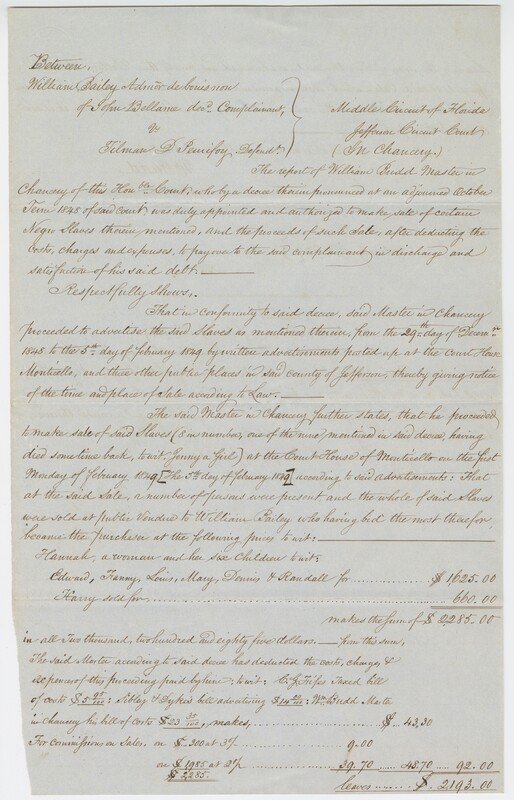 Between,
William Bailey Admor de bonis non
of John Bellame decd. Complainant,
vs
Tilman D Peurifoy, Defendt.
Middle Circuit of Florida
Jefferson Circuit Court
(In Chancery.)
The report of William Budd Master in
Chancery of this Honble Court, who by a decree therein pronounced at an adjourned October
Term 1845 of said court, was duly appointed and authorized to make sale of certain
Negro Slaves therein mentioned, and the proceeds of such Sale, after deducting the
costs, charges and expenses, to pay over to the said complainant in discharge and
satisfaction of his said debt.
Respectfully Shows,
That in conformity to said decree, said Master in Chancery
proceeded to advertise the said Slaves as mentioned therein, from the 29th day of Decemr
1848 to the 5th day of february 1849, by written advertisements posted up at the Court House
Monticello, and three other public places in said county of Jefferson, thereby giving notice
of the time and place of Sale according to Law.
The said Master in Chancery further states, that he proceeded
to make sale of said Slaves (8 in number, one of the nine, mentioned in said decree, having
died sometime back, to wit, Jenny a Girl) at the Court House of Monticello on the first
Monday of February 1849 [The 5th day of february 1849] according to said advertisements: That
at the said Sale, a number of persons were present and the whole of said Slaves
were sold at public Vendue to William Bailey who having bid the most therefor
became the purchaser at the following prices to wit:
Hannah, a woman and her six Children to wit:
Edward, Fanny, Louis, Mary, Dennis & Randall for $ 1625.00
Harry sold for 660.00
makes the sum of $ 2,285.00
in all Two thousand, two hundred and eighty five dollars. from this sum,
The said Master according to said decree has deducted the costs, charge &
expenses of this proceeding paid by him; to wit: bill
of costs $ 5 : Sibley & Dyke's bill advertising $ 14 : Wm. Budd Master
in chancery his bill of costs $ 23 , makes, $ 43.30
For commissions on Sales, on $ 300 at 3% 9.00
on $ 1985 at 2% 39.70 48.70 92.00
$ 2,285. leaves $ 2193.00